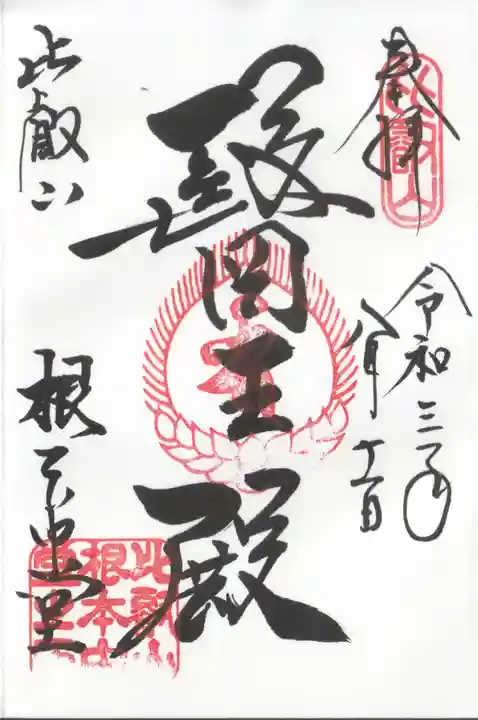 奉拝
比叡山
令和三年
八月十一日
醫王殿
比叡山
根本中堂
比叡山
根本中
堂